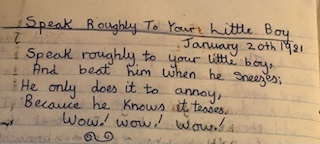 Speak Roughly To Your Little Boy
January 20th 1981
Speak roughly to your little boy,
And beat him when he sneezes;
He only does it to annoy,
Because he knows it teases.
Wow! wow! Wow!